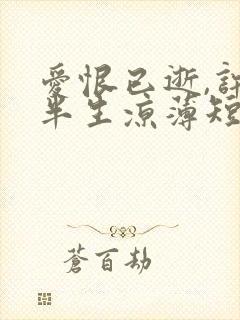 愛恨已逝,許
半生涼薄短
蒼百劫